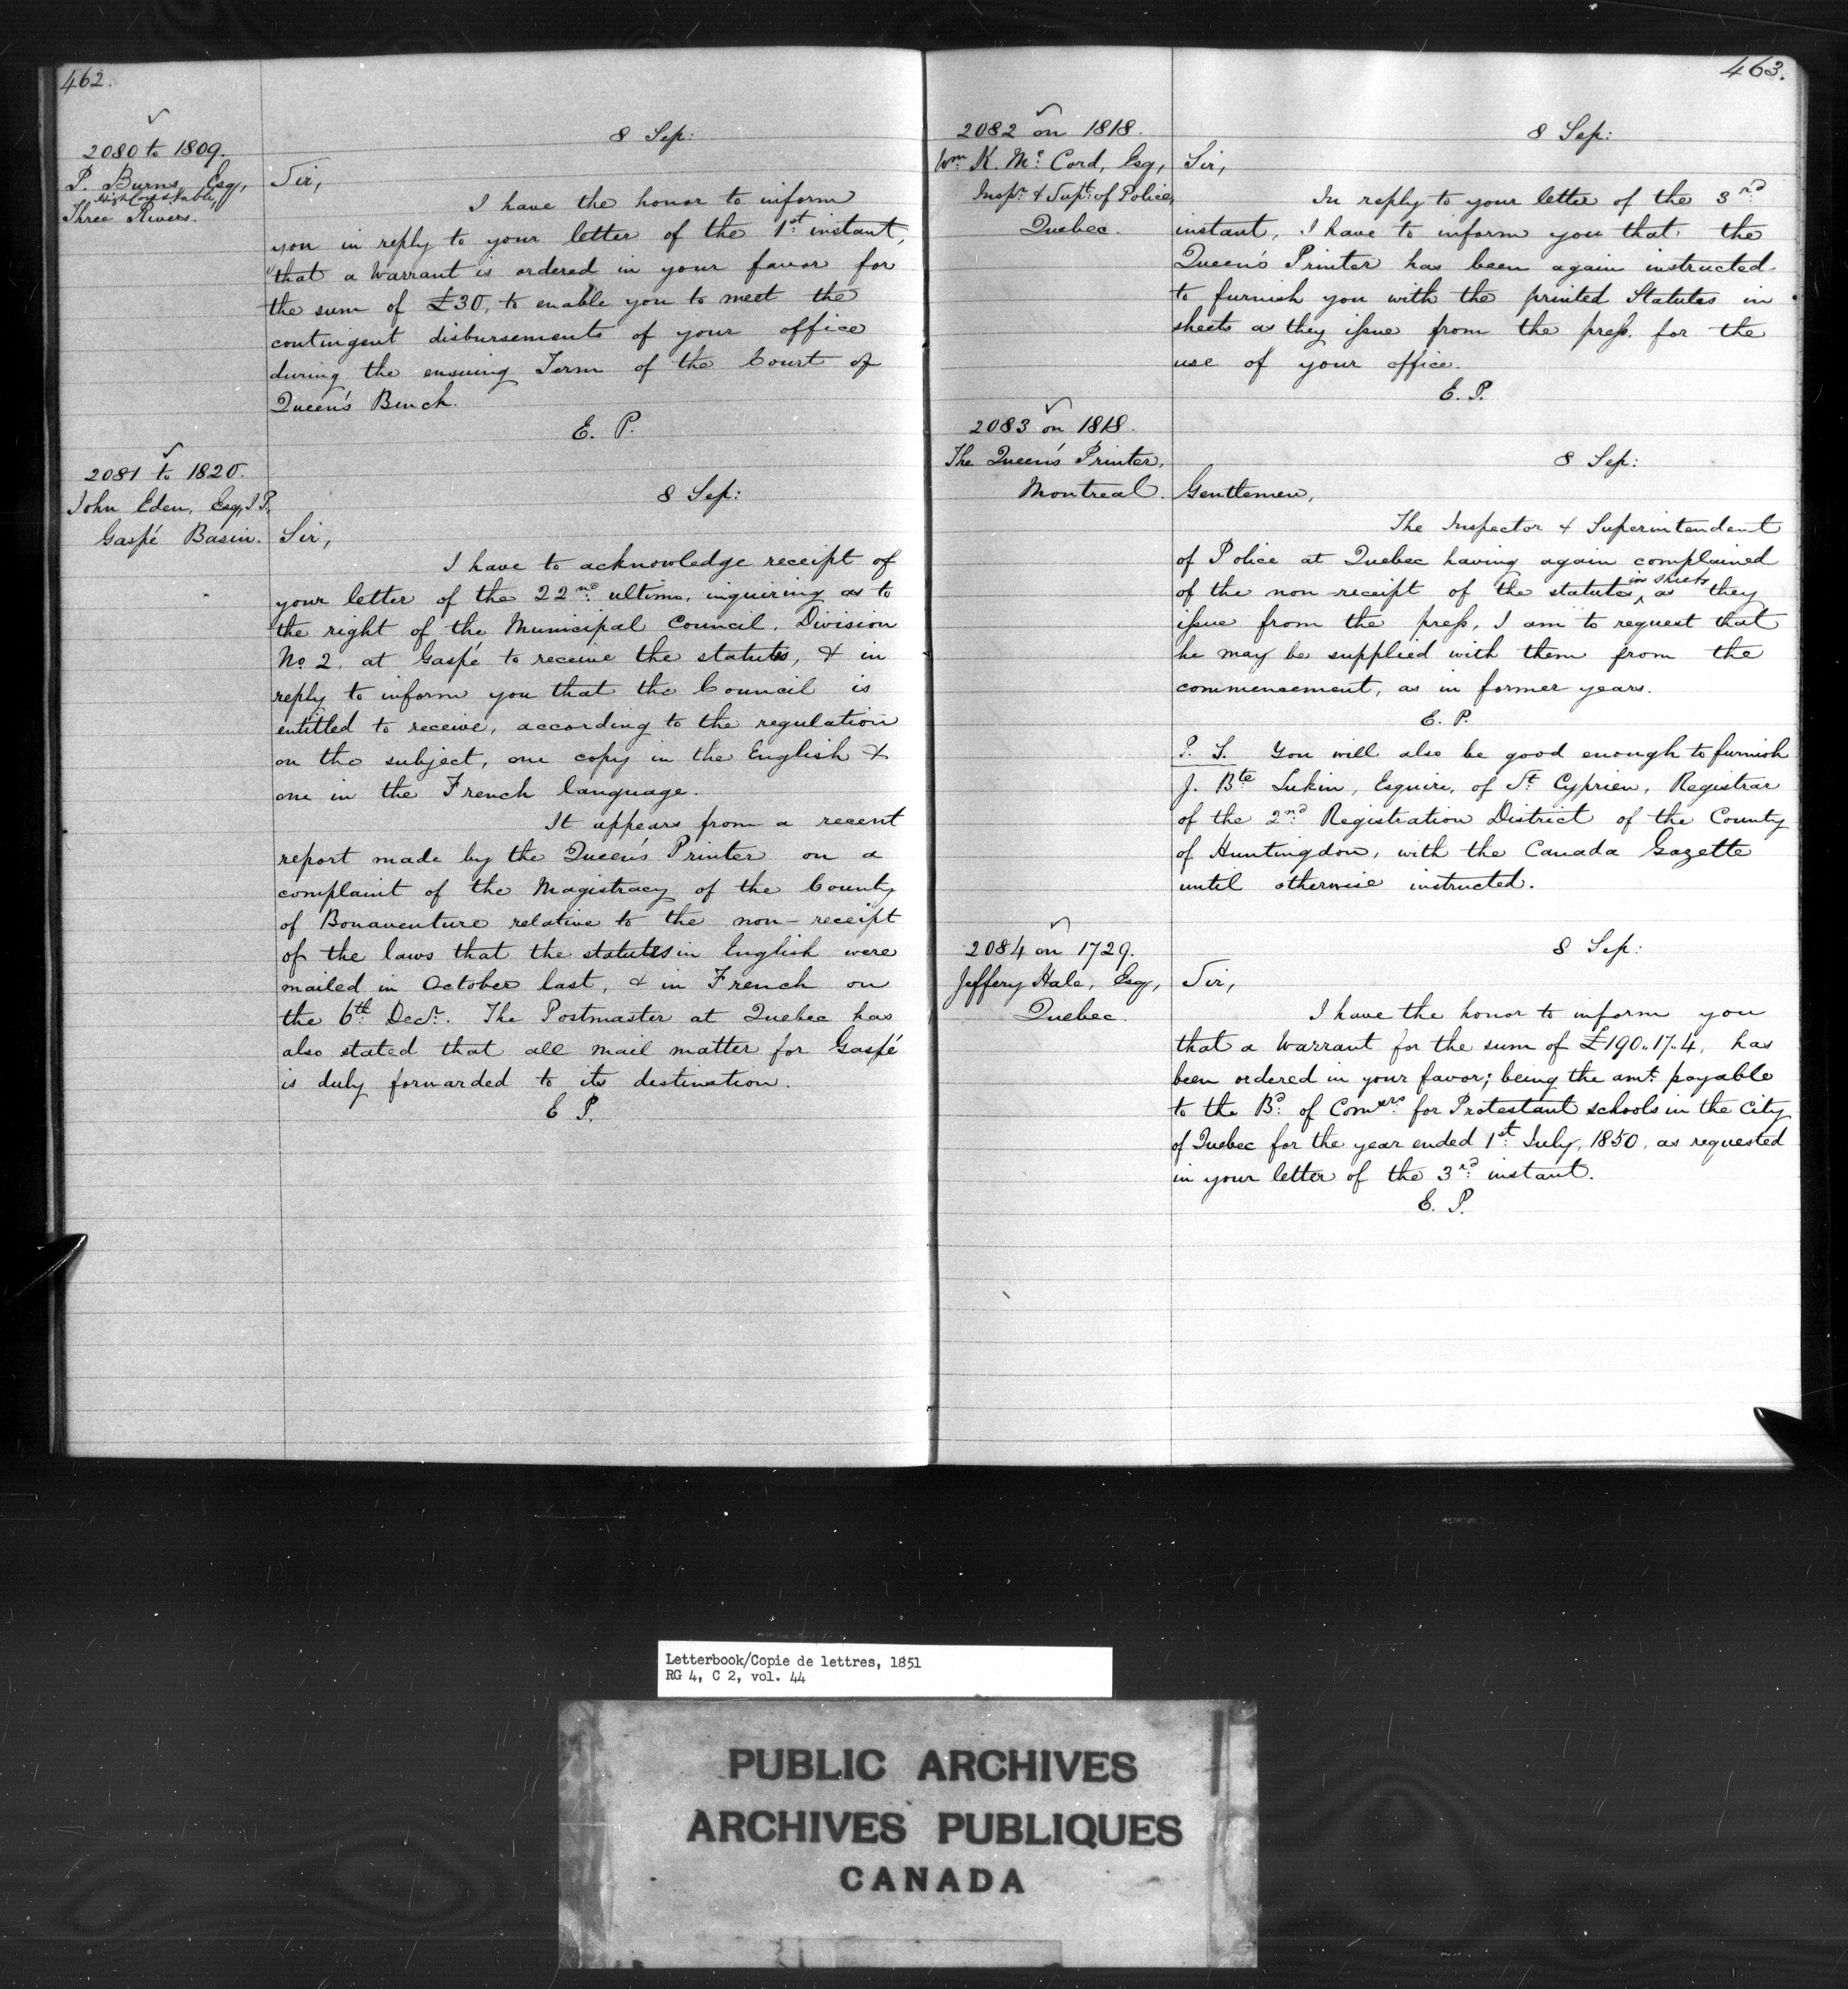 462.
2080 to 1809.
P. Burns, Esq,
High Constable,
Three Rivers.
8 Sep:
Sir,
I have the honor to inform
you in reply to your letter of the 1st instant,
that a Warrant is ordered in your favor for
the sum of £30, to enable you to meet the
contingent disbursements of your office
during the ensuing Term of the Court of
Queen's Bench.
E. P.
2081 to 1820.
John Eden, Esq, J.P.
Gaspé Basin.
8 Sep:
Sir,
I have to acknowledge receipt of
your letter of the 22nd ultimo, inquiring as to
the right of the Municipal Council, Division
No 2, at Gaspé to receive the statutes, & in
reply to inform you that the Council is
entitled to receive, according to the regulation
on the subject, one copy in the English &
one in the French language.
It appears from a recent
report made by the Queen's Printer on a
complaint of the Magistracy of the County
of Bonaventure relative to the non-receipt
of the laws that the statutes in English were
mailed in October last, & in French on
the 6th Decr. The Postmaster at Quebec has
also stated that all mail matter for Gaspé
is duly forwarded to its destination.
E P.
463.
2082 on 1818.
Wm K. McCord, Esq,
Inspr & Supt of Police,
Quebec.
8 Sep:
Sir,
In reply to your letter of the 3rd
instant, I have to inform you that the
Queen's Printer has been again instructed
to furnish you with the printed Statutes in
sheets as they issue from the press, for the
use of your office.
E. P.
2083 on 1818.
The Queen's Printer,
Montreal.
8 Sep:
Gentlemen,
The Inspector & Superintendent
of Police at Quebec having again complained
of the non-receipt of the statutes in sheets as they
issue from the press, I am to request that
he may be supplied with them from the
commencement, as in former years.
E. P.
P. S. You will also be good enough to furnish
J. Bte Lukin, Esquire, of St Cyprien, Registrar
of the 2nd Registration District of the County
of Huntingdon, with the Canada Gazette
until otherwise instructed.
2084 on 1729.
Jeffery Hale, Esq,
Quebec.
8 Sep:
Sir,
I have the honor to inform you
that a Warrant for the sum of £190..17..4, has
been ordered in your favor; being the amt payable
to the Bd of Comers for Protestant schools in the City
of Quebec for the year ended 1st July, 1850, as requested
in your letter of the 3rd instant.
E. P.
Letterbook/Copie de lettres, 1851
RG 4, C 2, vol. 44
PUBLIC ARCHIVES
ARCHIVES PUBLIQUES
CANADA